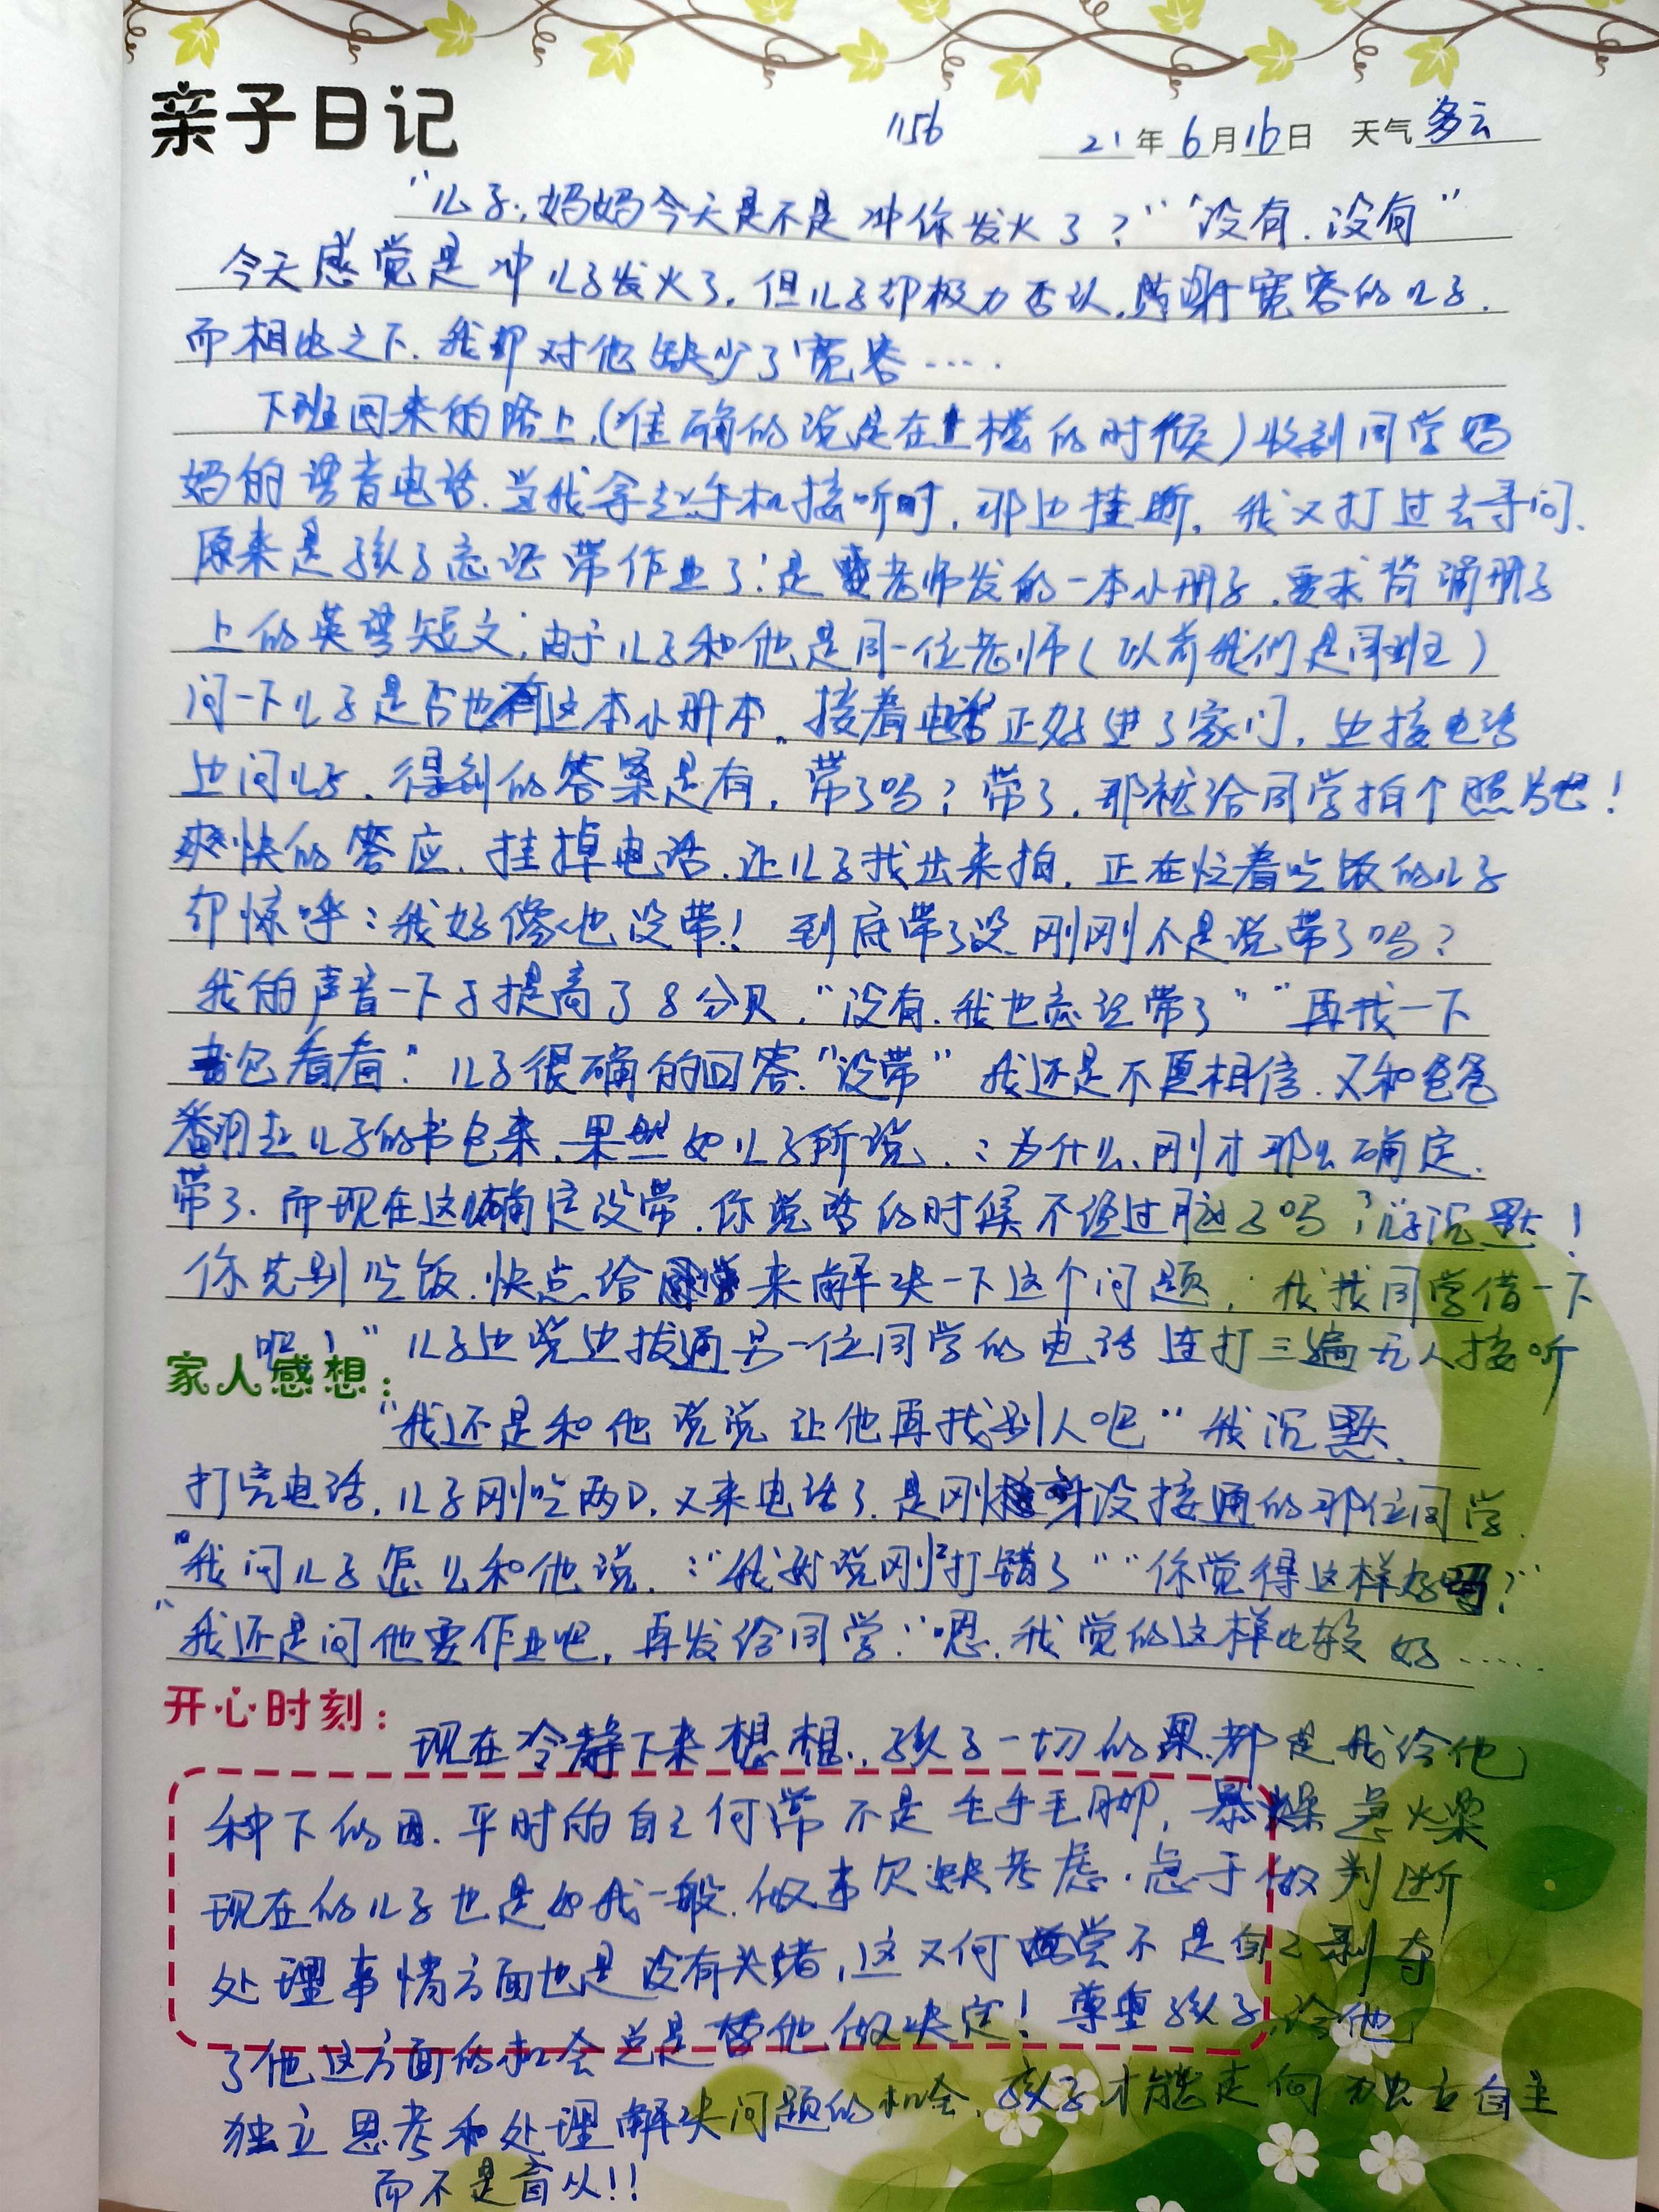 亲子日记
1156 21年6月16日 天气多云
"儿子，妈妈今天是不是冲你发火了？""没有.没有"
今天感觉是冲儿子发火了，但儿子却极力否认.感谢宽容的儿子.
而相比之下.我却对他缺少了宽容…..
下班回来的路上,(准确的说是在上楼的时候)收到同学妈
妈的语音电话.当我拿起手机接听时,那边挂断,我又打过去寻问.
原来是孩子忘记带作业了:是老师发的一本小册子.要求背诵册子
上的英语短文;由于儿子和他是同一位老师(以前我们是同班)
问一下儿子是否也有这本小册本.接着电话正好进了家门,边接电话
边问儿子.得到的答案是有,带了吗?带了,那就给同学拍个照片吧!
爽快的答应.挂掉电话.让儿子找出来拍.正在忙着吃饭的儿子
却惊呼:我好像也没带!到底带了没刚刚不是说带了吗?
我的声音一下子提高了8分贝,"没有.我也忘记带了""再找一下
书包看看"儿子很确的回答."没带"我还是不愿相信.又和爸爸
翻起儿子的书包来.果然如儿子所说.:为什么,刚才那么确定.
带了.而现在这确定没带.你说话的时候不经过脑子吗?儿子沉默!
你先别吃饭.快点给同学来解决一下这个问题,我找同学借一下
吧!"儿子边说边拔通另一位同学的电话连打三遍无人接听
家人感想：
"我还是和他说说让他再找别人吧"我沉默.
打完电话,儿子刚吃两口,又来电话了.是刚没接通的那位同学.
"我问儿子怎么和他说.:"我就说刚打错了""你觉得这样好吗?"
"我还是问他要作业吧,再发给同学:"嗯.我觉的这样比较好…..
开心时刻：
现在冷静下来想想.孩子一切的果.都是我给他
种下的因.平时的自己何常不是毛手毛脚,暴燥急火柴
现在的儿子也是如我一般.做事欠缺考虑.急于做判断
处理事情方面也是没有头绪,这又何尝不是自己剥夺
了他这方面的机会总是替他做决定!尊重孩子,给他
独立思考和处理解决问题的机会,孩子才能走向独立自主
而不是盲从!!